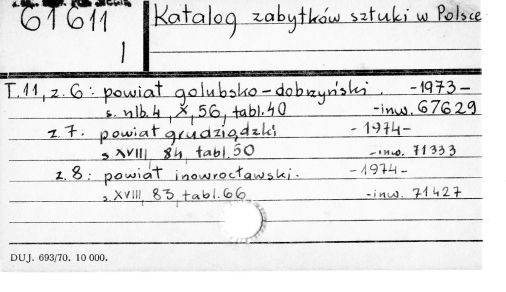 61611
I
Katalog zabytków sztuki w Polsce
T.11, z.6: powiat golubsko-dobrzyński. -1973-
s. nlb.4, X, 56, tabl.40 -inw. 67629
z.7. powiat grudziądzki -1974-
s. XVIII, 84, tabl.50 -inw. 71333
z.8: powiat inowrocławski. -1974-
s. XVIII, 83, tabl.66 -inw. 71427
DUJ. 693/70. 10 000.